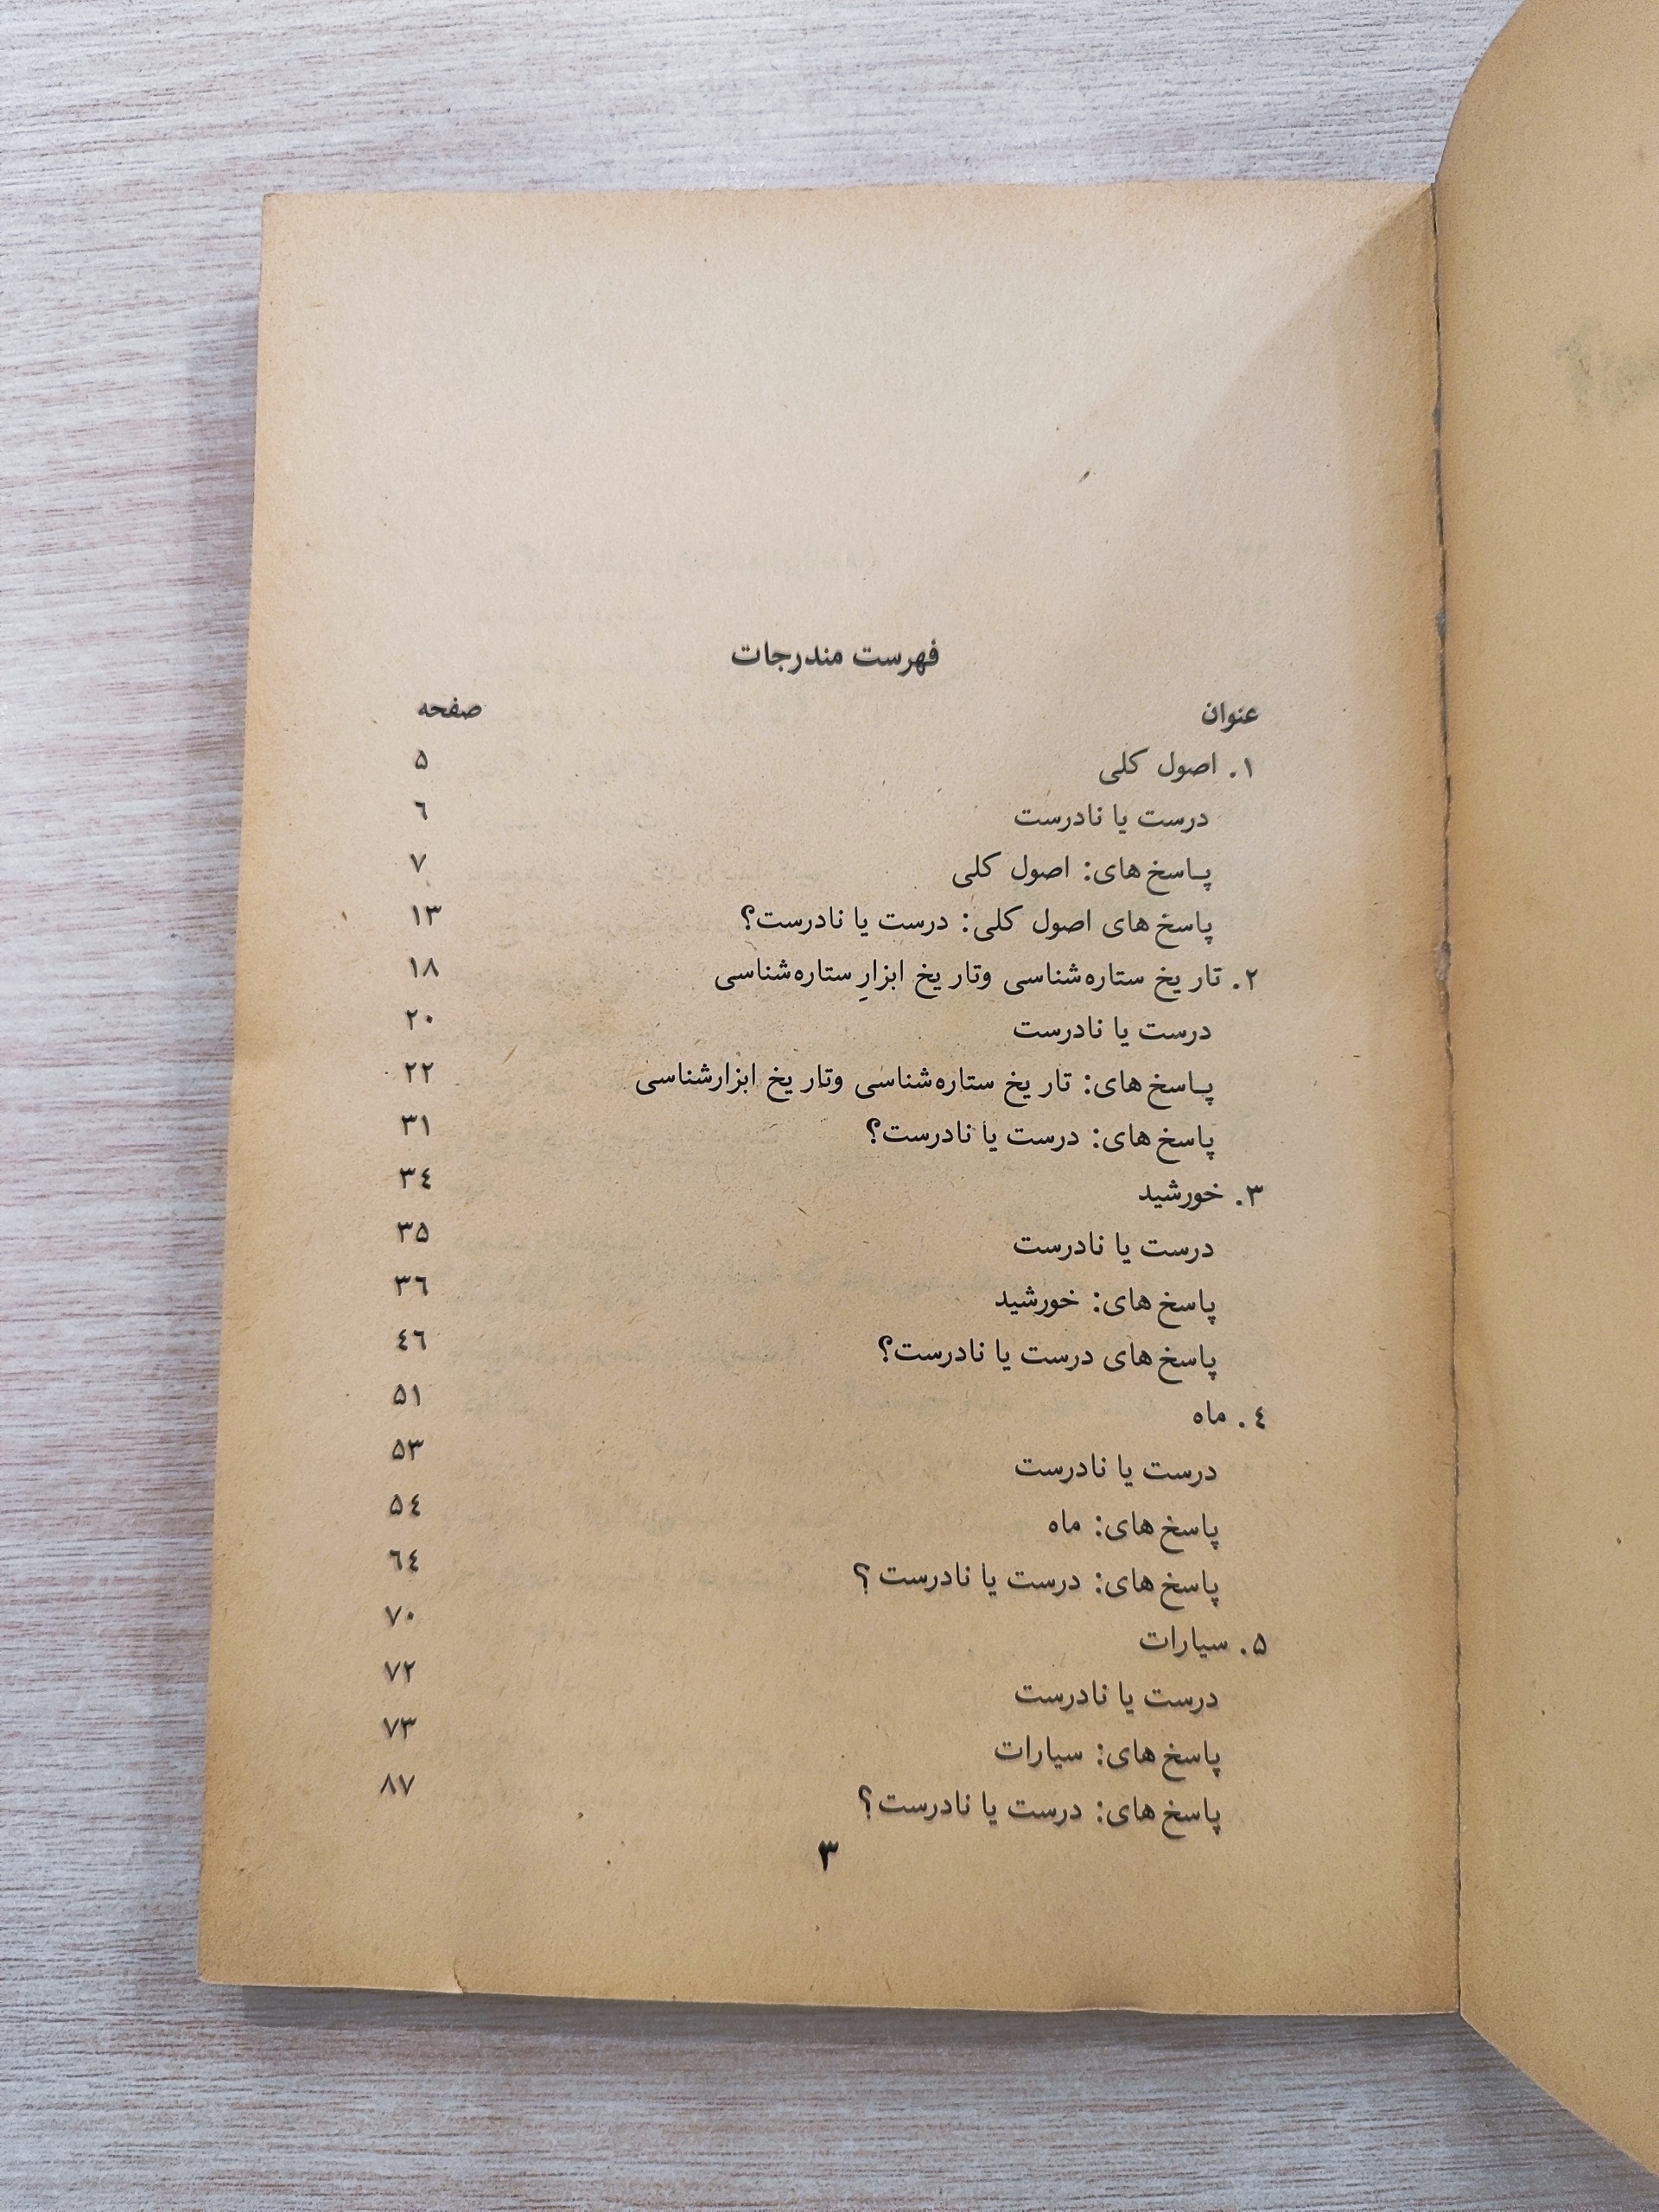 فهرست مندرجات
عنوان صفحه
۱. اصول کلی ۵
درست یا نادرست ٦
پاسخ‌های: اصول کلی ۷
پاسخ‌های اصول کلی: درست یا نادرست؟ ۱۳
۲. تاریخ ستاره‌شناسی وتاریخ ابزارِ ستاره‌شناسی ۱۸
درست یا نادرست ۲۰
پاسخ‌های: تاریخ ستاره‌شناسی وتاریخ ابزارشناسی ۲۲
پاسخ‌های: درست یا نادرست؟ ۳۱
۳. خورشید ۳٤
درست یا نادرست ۳۵
پاسخ‌های: خورشید ۳٦
پاسخ‌های درست یا نادرست؟ ٤٦
٤. ماه ۵۱
درست یا نادرست ۵۳
پاسخ‌های: ماه ۵٤
پاسخ‌های: درست یا نادرست؟ ٦٤
۵. سیارات ۷۰
درست یا نادرست ۷۲
پاسخ‌های: سیارات ۷۳
پاسخ‌های: درست یا نادرست؟ ۸۷
۳